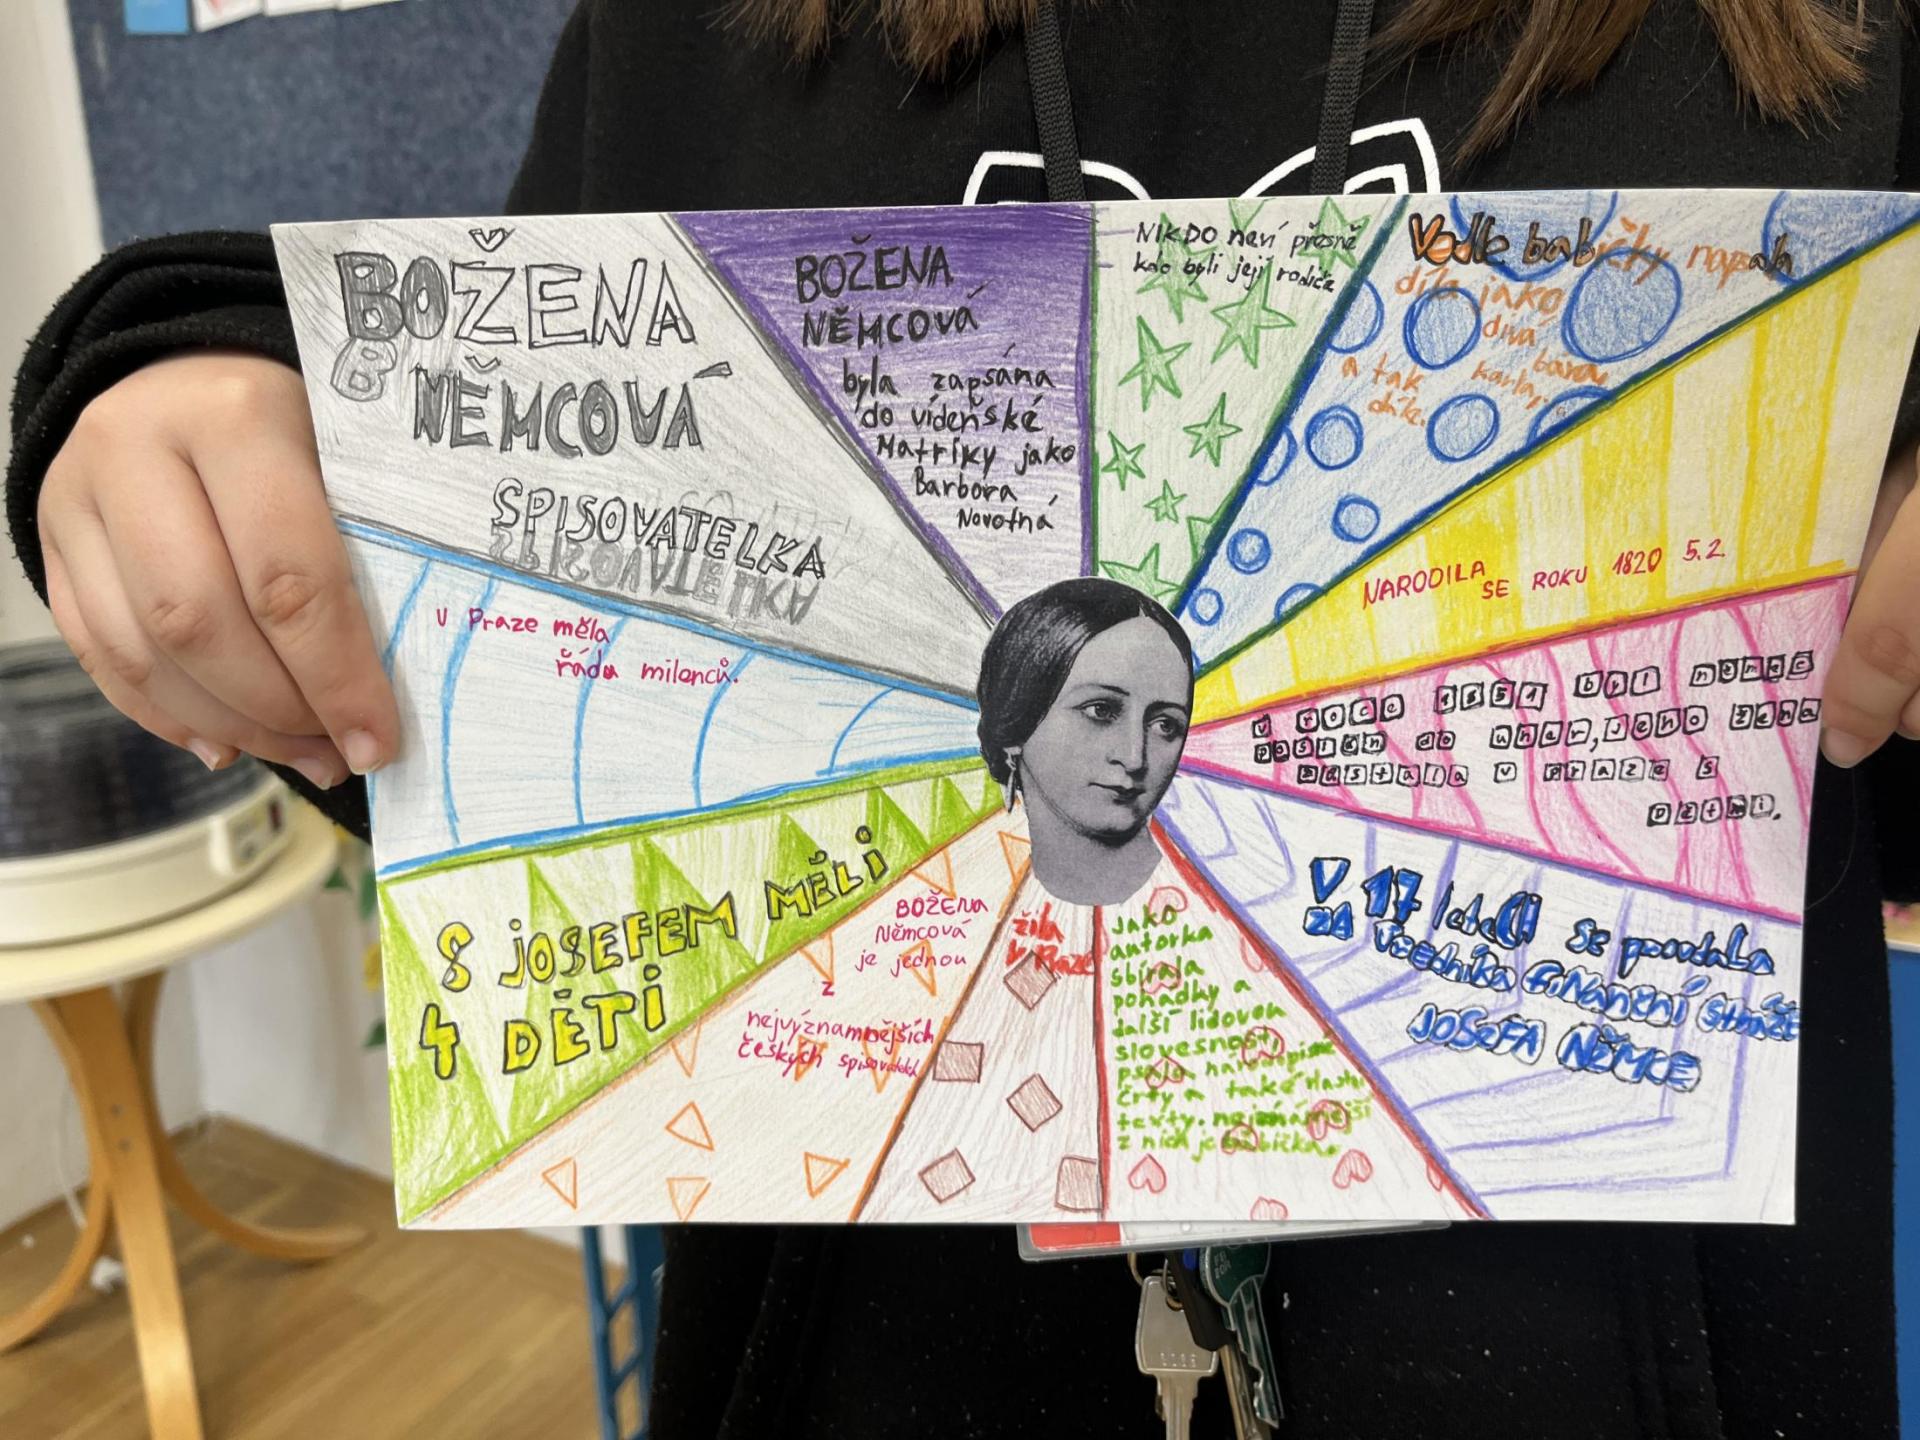 BOŽENA
NĚMCOVÁ
SPISOVATELKA
BOŽENA
NĚMCOVÁ
byla zapsána
do vídeňské
Matriky jako
Barbora
Novotná
NIKDO neví přesně
kdo byli její rodiče
Vedle babičky napsala
díla jako
divá
bára,
karla,
a tak
dále.
NARODILA
SE ROKU 1820 5.2.
V roce 1851 byl němec
poslán do uher, jeho žena
zůstala v praze s
dětmi.
V 17 letech se provdala
ZA úředníka finanční stráže
JOSEFA NĚMCE
Jako
autorka
sbírala
pohádky a
další lidovou
slovesnost,
psala národopisné
črty a také vlastní
texty. nejznámější
z nich je babička.
žila
v Praze
BOŽENA
Němcová
je jednou
z
nejvýznamnějších
českých spisovatelek
S JOSEFEM MĚLI
4 DĚTI
V Praze měla
řadu milenců.